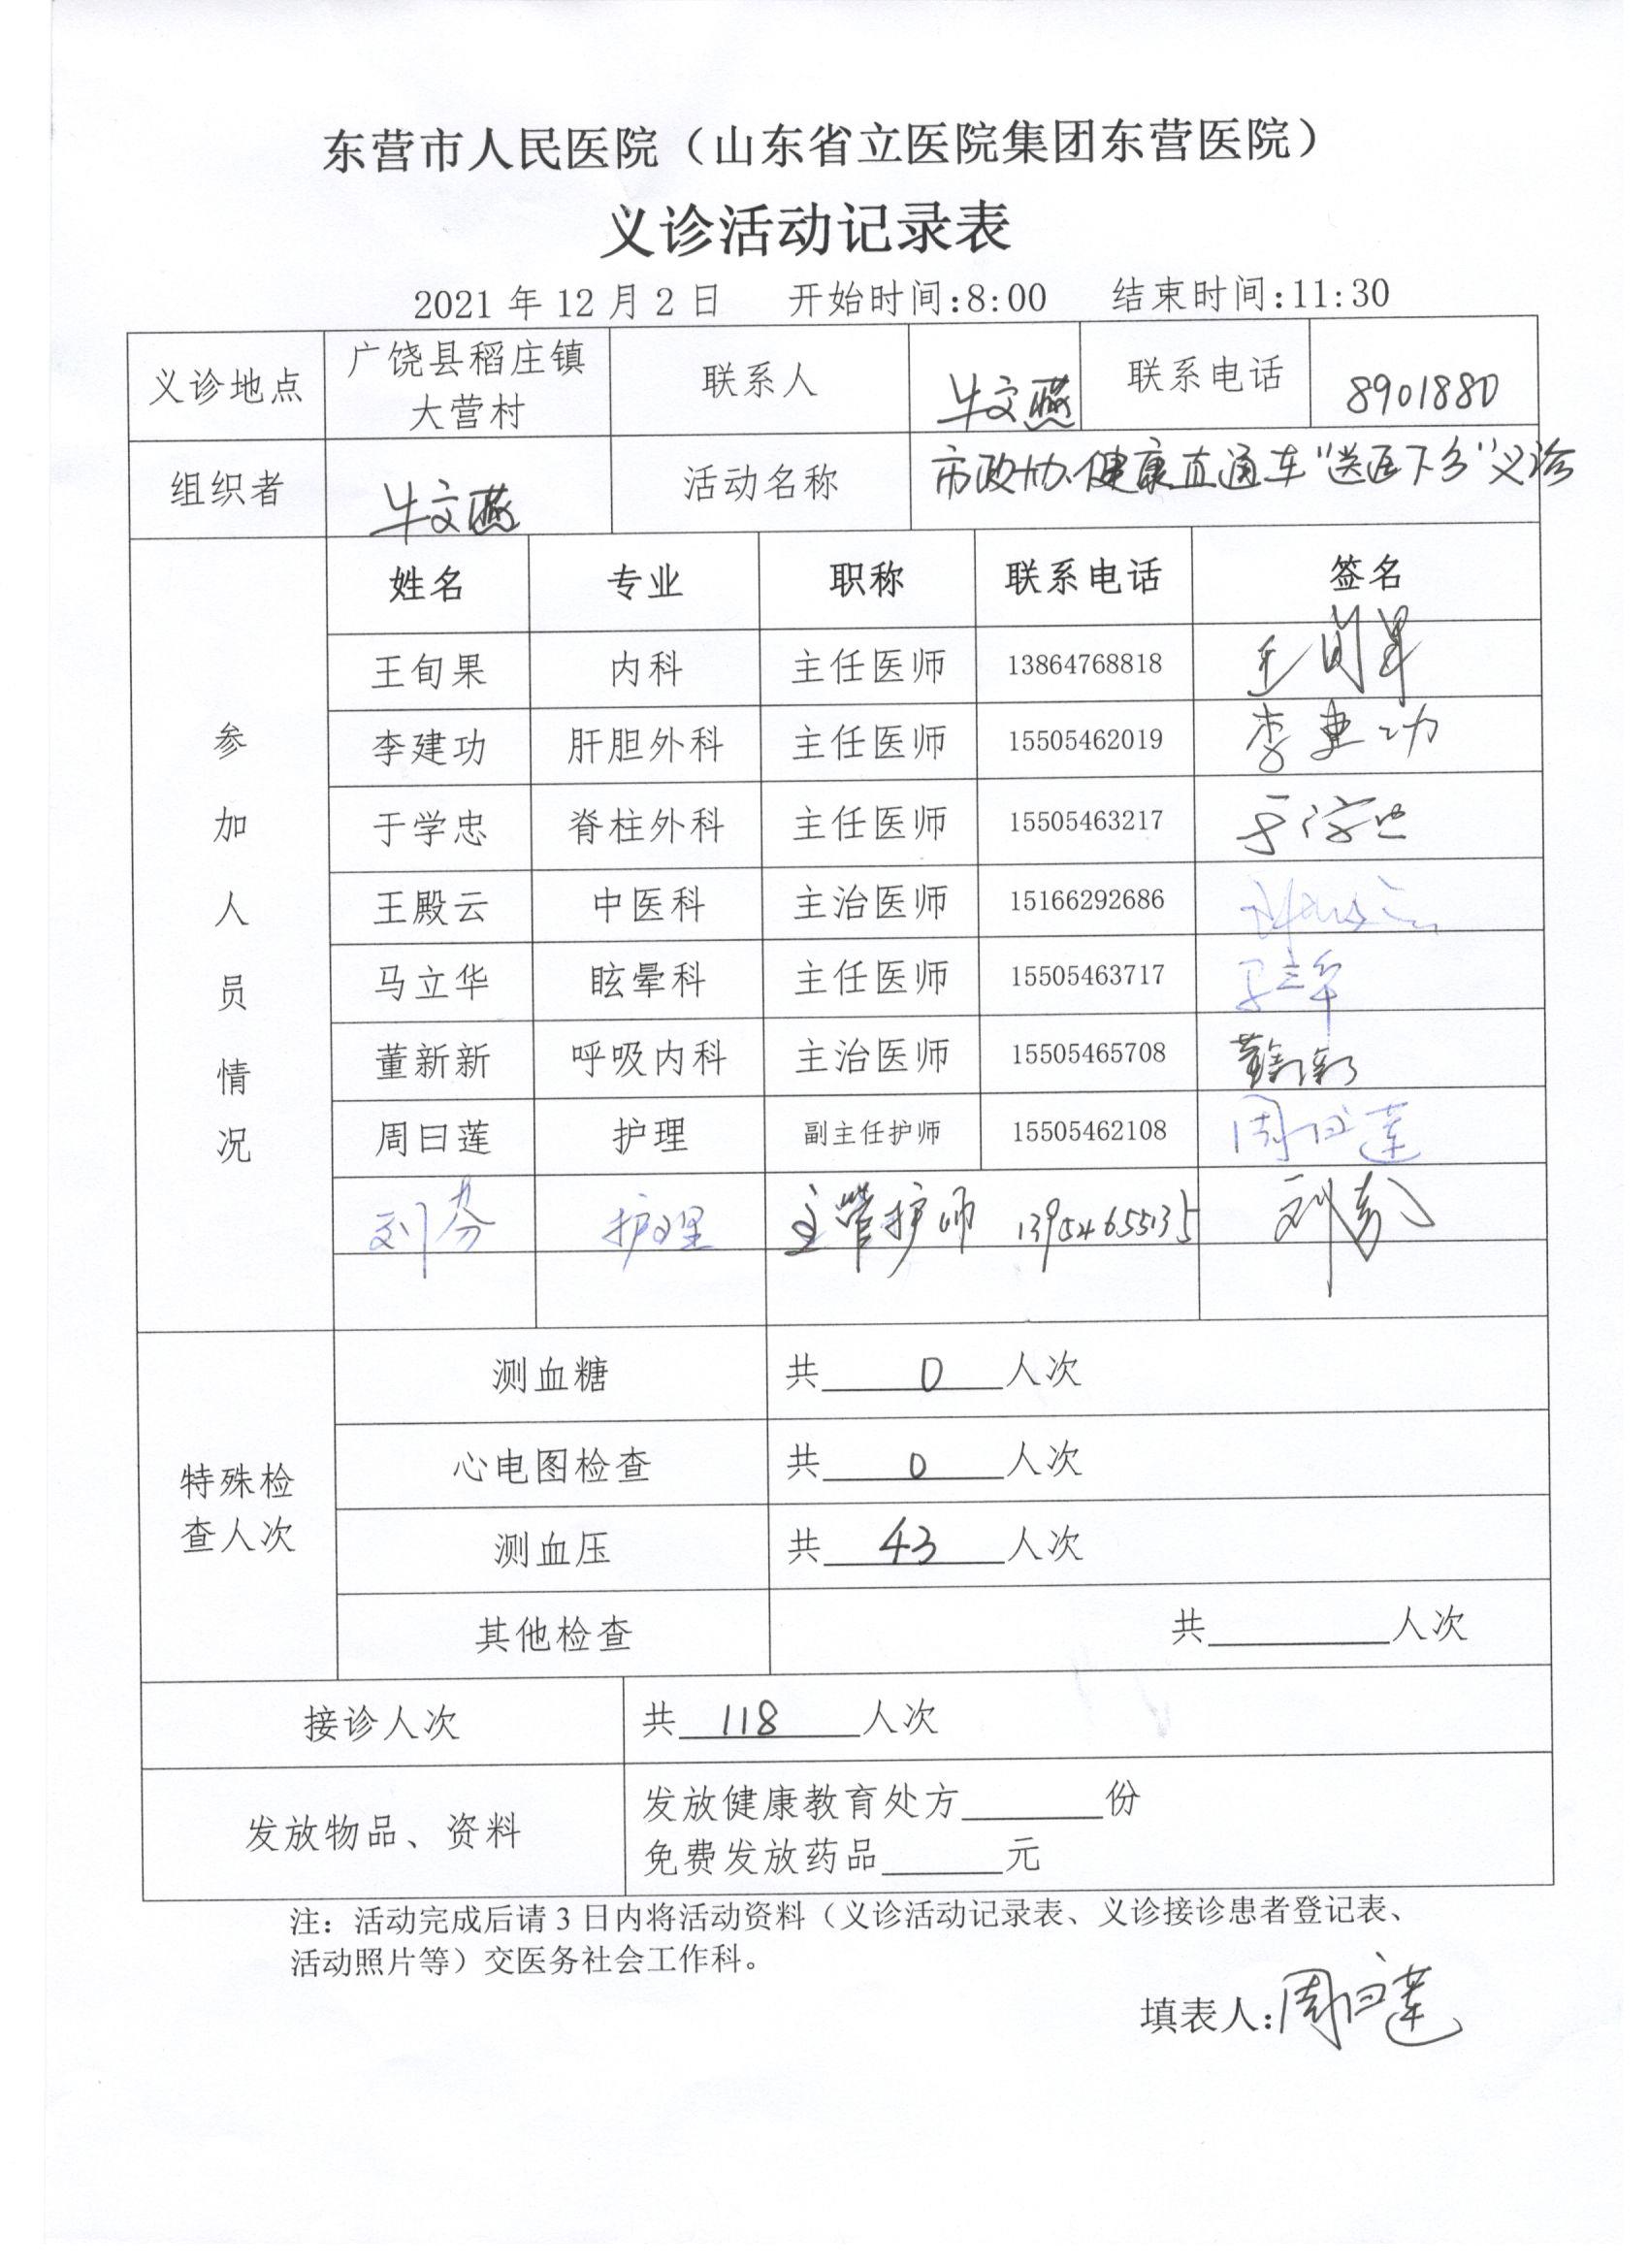 东营市人民医院（山东省立医院集团东营医院）
义诊活动记录表
2021 年 12 月 2 日 开始时间:8:00 结束时间:11:30
义诊地点 广饶县稻庄镇大营村 联系人 牛文燕 联系电话 8901880
组织者 牛文燕 活动名称 市政协·健康直通车“送医下乡”义诊
参加人员情况
姓名 专业 职称 联系电话 签名
王旬果 内科 主任医师 13864768818 王旬果
李建功 肝胆外科 主任医师 15505462019 李建功
于学忠 脊柱外科 主任医师 15505463217 于学忠
王殿云 中医科 主治医师 15166292686
马立华 眩晕科 主任医师 15505463717 马立华
董新新 呼吸内科 主治医师 15505465708 董新新
周曰莲 护理 副主任护师 15505462108 周曰莲
刘芬 护理 主管护师 13954655135 刘芬
特殊检查人次
测血糖 共 0 人次
心电图检查 共 0 人次
测血压 共 43 人次
其他检查 共______人次
接诊人次 共 118 人次
发放物品、资料
发放健康教育处方______份
免费发放药品______元
注：活动完成后请 3 日内将活动资料（义诊活动记录表、义诊接诊患者登记表、
活动照片等）交医务社会工作科。
填表人:周曰莲